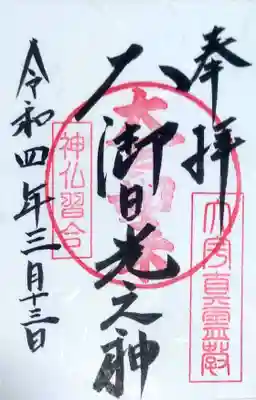 奉拝
大御日光之神
神仏習合
令和四年三月十三日